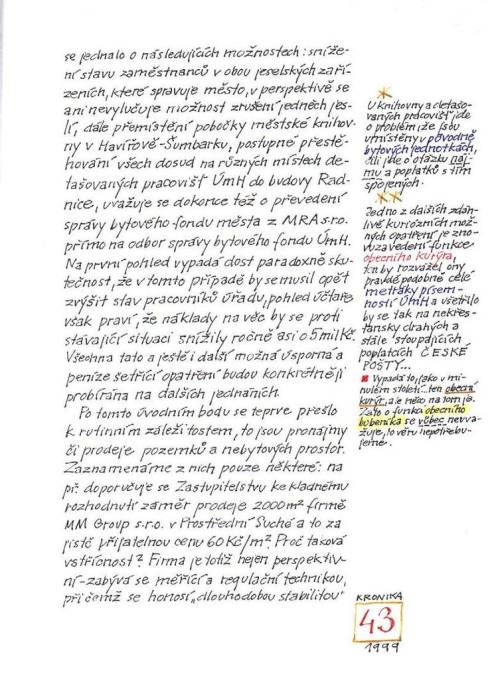 se jednalo o následujících možnostech: sníže-
ní stavu zaměstnanců v obou jeselských zaří-
zeních, které spravuje město, v perspektivě se
ani nevylučuje možnost zrušení jedněch jes-
lí, dále přemístění pobočky městské knihov-
ny v Havířově-Šumbarku, postupné přestě-
hování všech dosud na různých místech de-
tašovaných pracovišť ÚmH do budovy Rad-
nice, uvažuje se dokonce též o převedení
správy bytového fondu města z MRA s.r.o.
přímo na odbor správy bytového fondu ÚmH.
Na první pohled vypadá dost paradoxně sku-
tečnost, že v tomto případě by se musil opět
zvýšit stav pracovníků Úřadu, pohled účtaře
však praví, že náklady na věc by se proti
stávající situaci snížily ročně asi o 5 mil Kč.
Všechna tato a ještě i další možná úsporná a
peníze šetřící opatření budou konkrétněji
probírána na dalších jednáních.
Po tomto úvodním bodu se teprve přešlo
k rutinním záležitostem, to jsou pronájmy
či prodeje pozemků a nebytových prostor.
Zaznamenáme z nich pouze některé: na
př. doporučuje se Zastupitelstvu ke kladnému
rozhodnutí záměr prodeje 2000 m² firmě
MM Group s.r.o. v Prostřední Suché a to za
jistě přijatelnou cenu 60 Kč/m². Proč taková
vstřícnost? Firma je totiž nejen perspektiv-
ní-zabývá se měřící a regulační technikou,
přičemž se honosí „dlouhodobou stabilitou"
U knihovny a detašo-
vaných pracovišť jde
o problém, že jsou
umístěny v původně
bytových jednotkách,
čili jde o otázku náj-
mu a poplatků s tím
spojených.
Jedno z dalších zdán-
livě kuriózních mož-
ných opatření je zno-
vuzavedení funkce
obecního kurýra,
ten by rozvážel ony
pravděpodobně celé
metráky písem-
ností ÚmH a ušetřilo
by se tak na nekřes-
ťansky drahých a
stále stoupajících
poplatcích ČESKÉ
POŠTY...
Vypadá to, jako v mi-
nulém století... ten obecní
kurýr, ale něco na tom je.
Zato o funkci obecního
bubeníka se vůbec neuva-
žuje, to věru nepotřebu-
jeme.
KRONIKA
43
1999